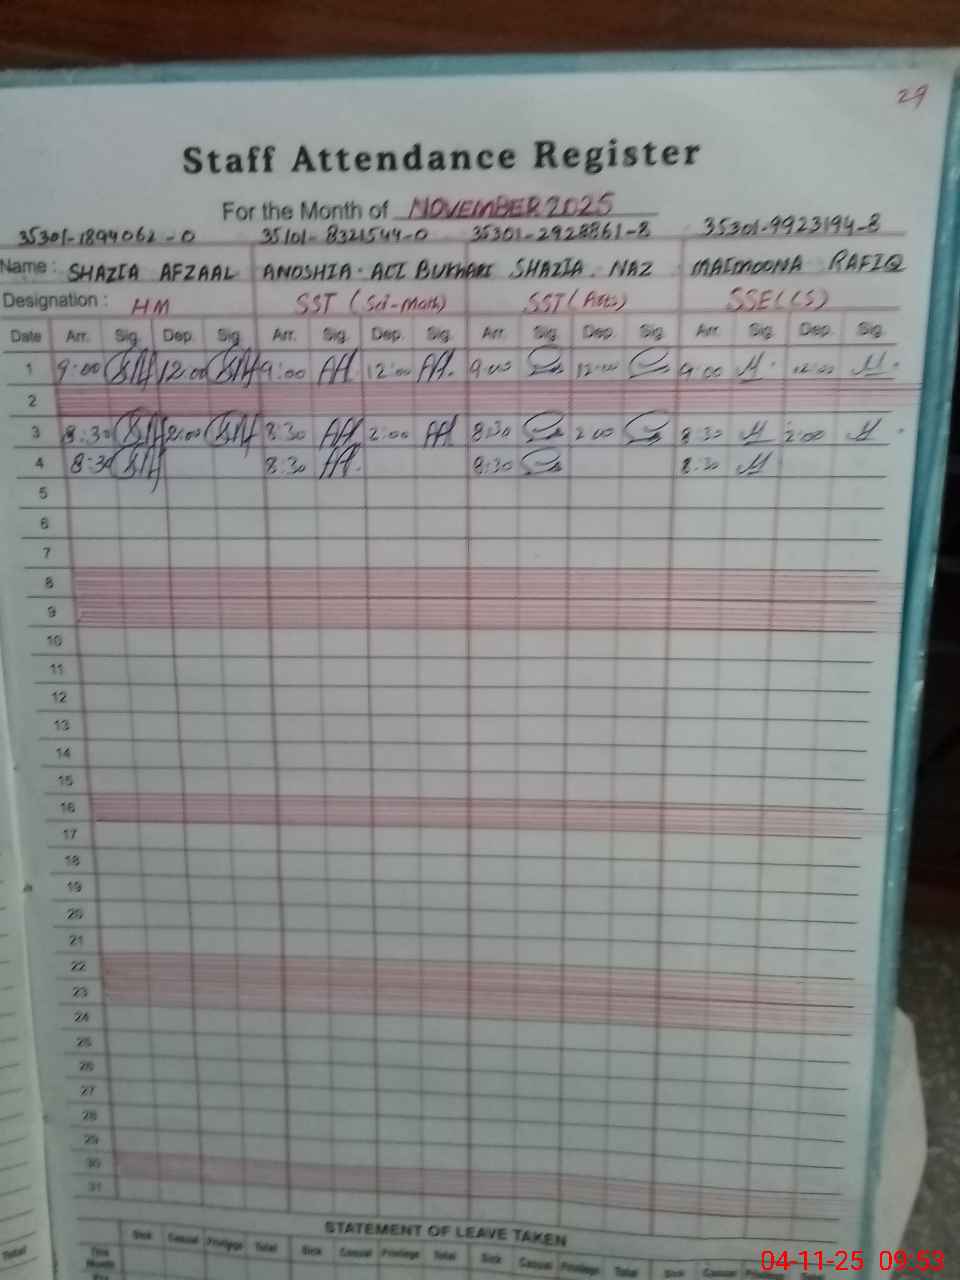 29
Staff Attendance Register
For the Month of NOVEMBER 2025
35301-1894062-0 35101-8321544-0 35301-2928861-8 35301-9923194-8
Name: SHAZIA AFZAAL ANOSHIA ALI BUKHARI SHAZIA NAZ MAIMOONA RAFIQ
Designation: HM SST (Sci-Math) SST (Arts) SSE (CS)
Date Arr. Sig. Dep. Sig. Arr. Sig. Dep. Sig. Arr. Sig. Dep. Sig. Arr. Sig. Dep. Sig.
1 9:00 12:00 9:00 12:00 9:00 12:00 9:00 12:00
2
3 8:30 2:00 8:30 2:00 8:30 2:00 8:30 2:00
4 8:30 8:30 8:30 8:30
5
6
7
8
9
10
11
12
13
14
15
16
17
18
19
20
21
22
23
24
25
26
27
28
29
30
31
STATEMENT OF LEAVE TAKEN
Sick Casual Privilege Total Sick Casual Privilege Total Sick Casual Privilege Total Sick Casual Privilege Total
This Month
Total
04-11-25 09:53